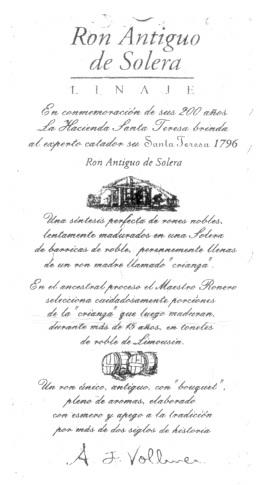 de Solera
Ron Antiguo
de Solera
LINAJE
En conmemoración de sus 200 años
La Hacienda Santa Teresa brinda
al experto catador su Santa Teresa 1796
Ron Antiguo de Solera
Una síntesis perfecta de rones nobles,
lentamente madurados en una Solera
de barricas de roble, perennemente llenas
de un ron madre llamado "crianza".
En el ancestral proceso el Maestro Ronero
selecciona cuidadosamente porciones
de la "crianza" que luego maduran,
durante más de 15 años, en toneles
de roble de Limousin.
Un ron único, antiguo, con "bouquet",
pleno de aromas, elaborado
con esmero y apego a la tradición
por más de dos siglos de historia
A J. Vollmer